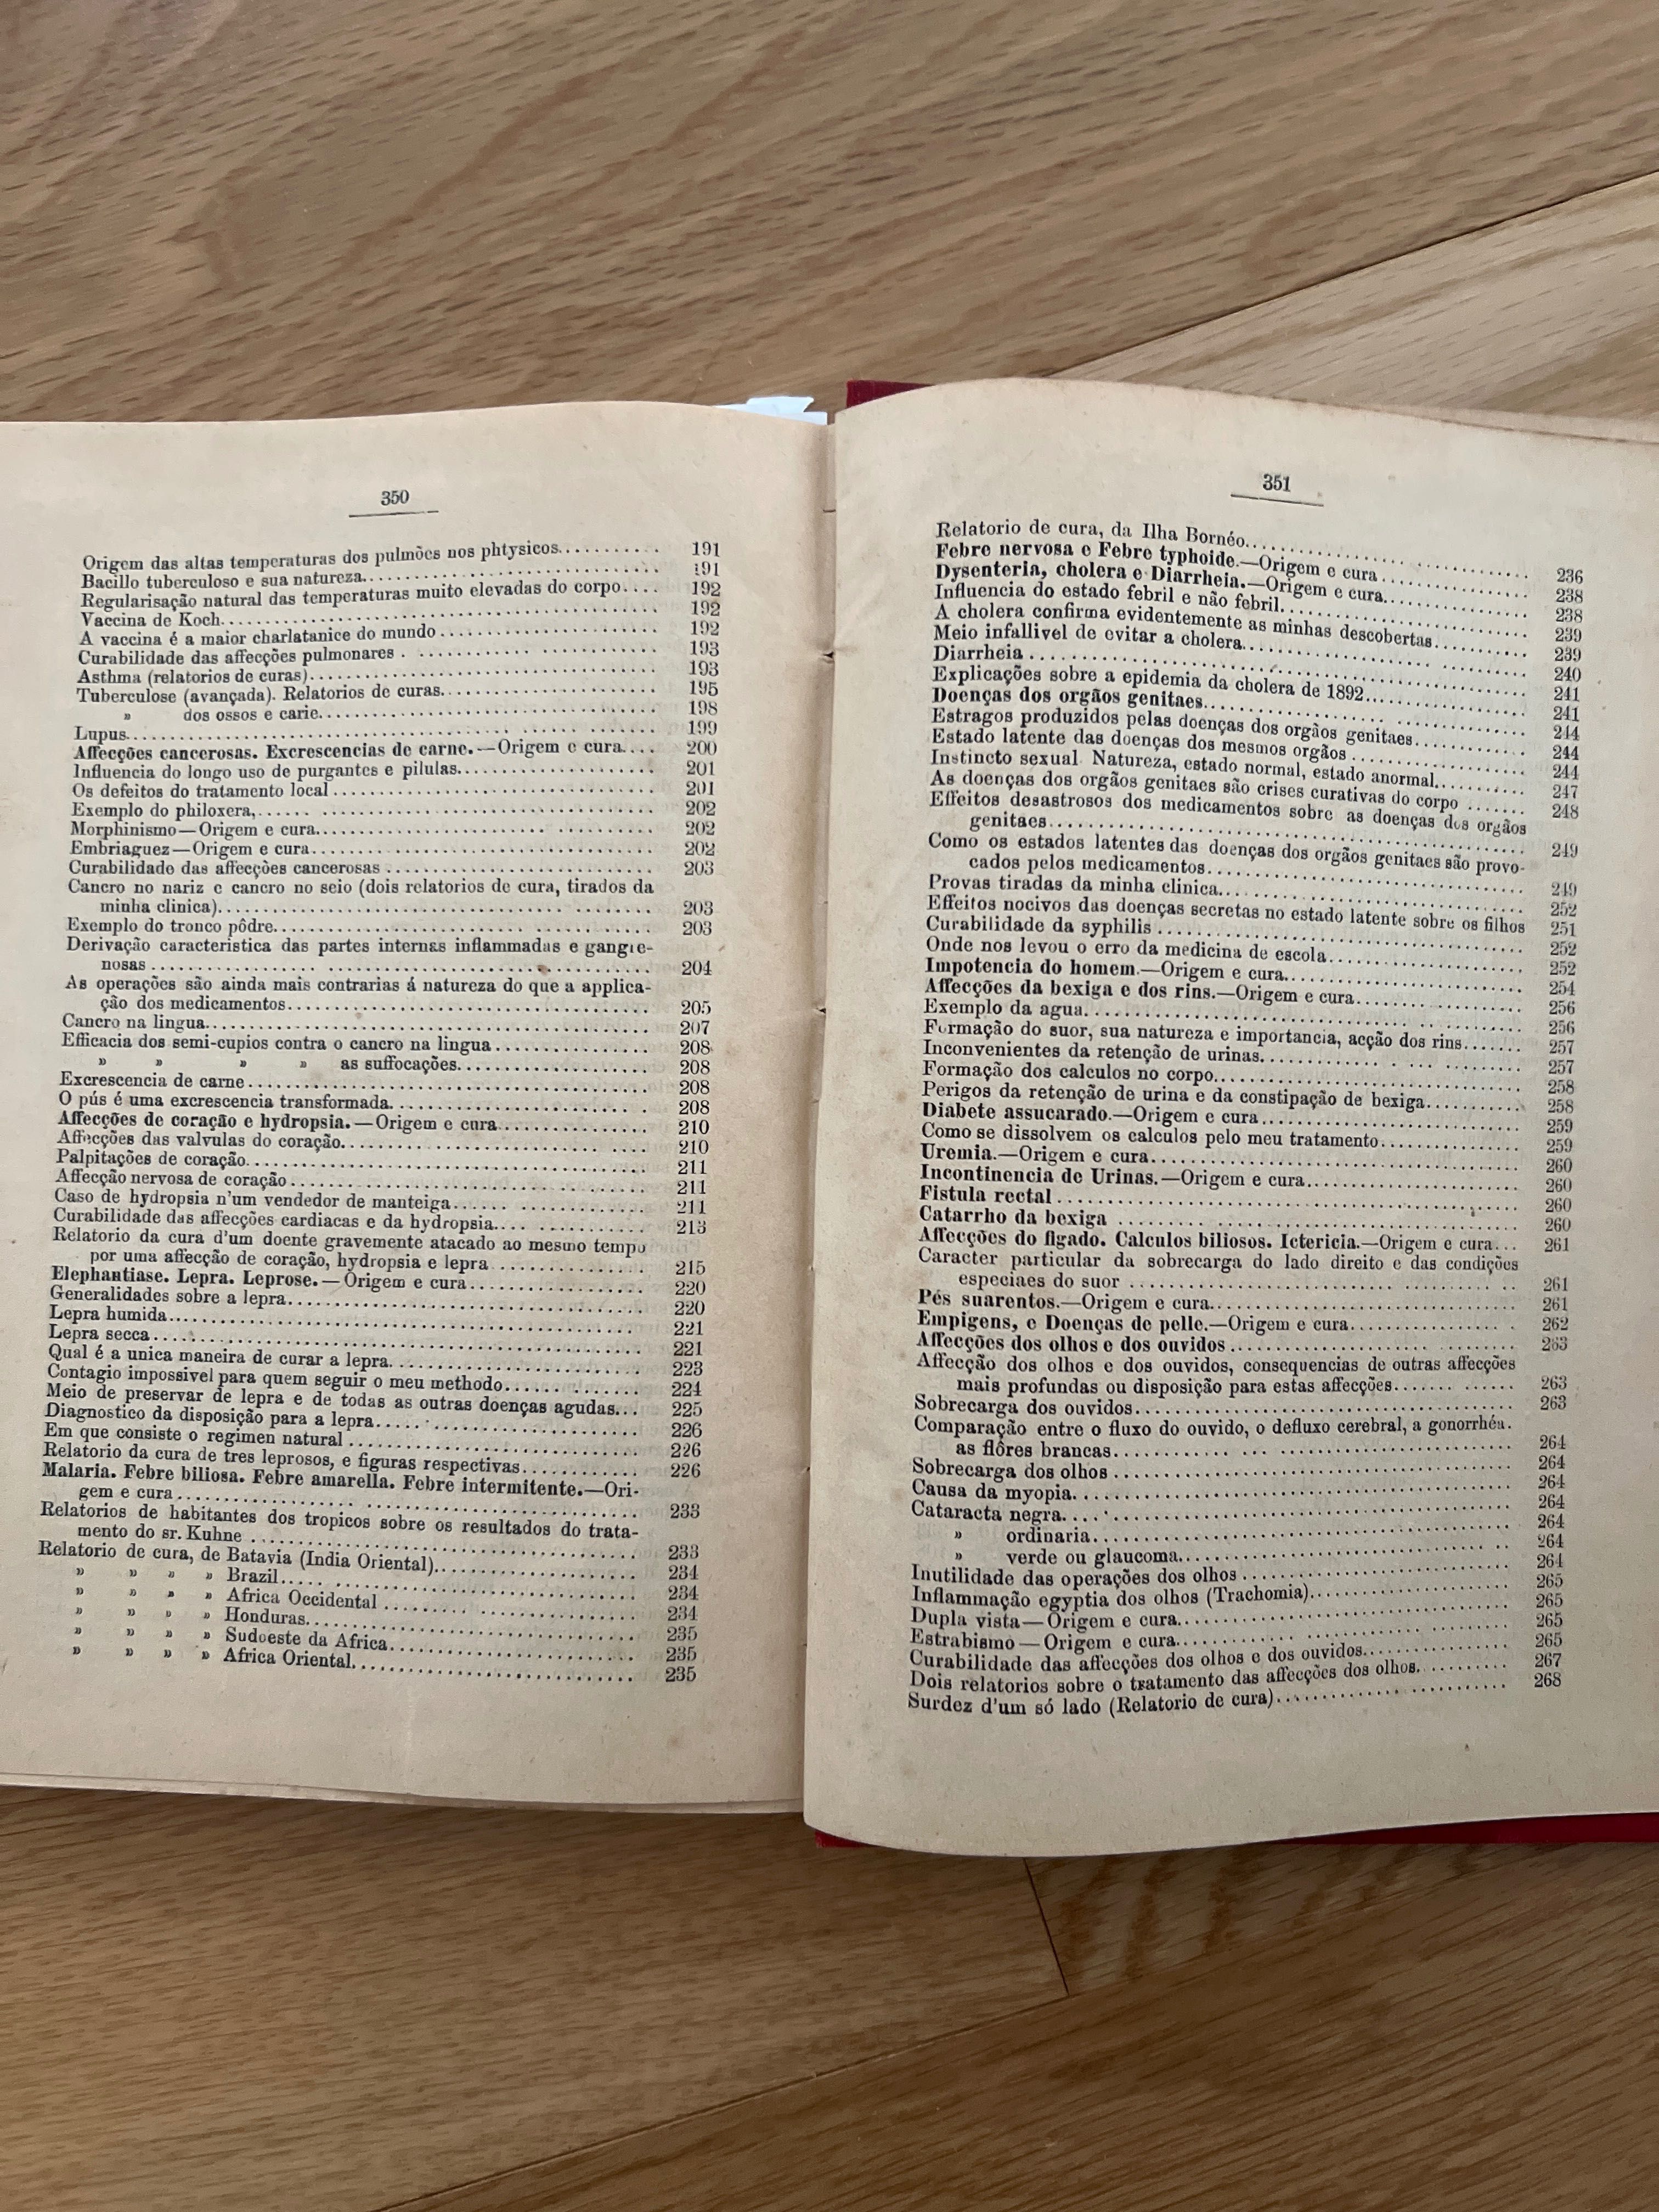 350
Origem das altas temperaturas dos pulmões nos phtysicos........... 191
Bacillo tuberculoso e sua natureza................................ 191
Regularisação natural das temperaturas muito elevadas do corpo.... 192
Vaccina de Koch................................................... 192
A vaccina é a maior charlatanice do mundo......................... 192
Curabilidade das affecções pulmonares............................. 193
Asthma (relatorios de curas)...................................... 193
Tuberculose (avançada). Relatorios de curas....................... 195
» dos ossos e carie............................................... 198
Lupus............................................................. 199
Affecções cancerosas. Excrescencias de carne.—Origem e cura.... 200
Influencia do longo uso de purgantes e pilulas.................... 201
Os defeitos do tratamento local................................... 201
Exemplo do philoxera,............................................. 202
Morphinismo—Origem e cura......................................... 202
Embriaguez—Origem e cura.......................................... 202
Curabilidade das affecções cancerosas............................. 203
Cancro no nariz e cancro no seio (dois relatorios de cura, tirados da
minha clinica).................................................... 203
Exemplo do tronco pôdre........................................... 203
Derivação caracteristica das partes internas inflammadas e gangre-
nosas............................................................. 204
As operações são ainda mais contrarias á natureza do que a applica-
ção dos medicamentos.............................................. 205
Cancro na lingua.................................................. 207
Efficacia dos semi-cupios contra o cancro na lingua............... 208
» » » » as suffocações.......................................... 208
Excrescencia de carne............................................. 208
O pús é uma excrescencia transformada............................. 208
Affecções de coração e hydropsia.—Origem e cura................... 210
Affecções das valvulas do coração................................. 210
Palpitações de coração............................................ 211
Affecção nervosa de coração....................................... 211
Caso de hydropsia n'um vendedor de manteiga....................... 211
Curabilidade das affecções cardiacas e da hydropsia............... 213
Relatorio da cura d'um doente gravemente atacado ao mesmo tempo
por uma affecção de coração, hydropsia e lepra.................... 215
Elephantiase. Lepra. Leprose.—Origem e cura....................... 220
Generalidades sobre a lepra....................................... 220
Lepra humida...................................................... 221
Lepra secca....................................................... 221
Qual é a unica maneira de curar a lepra........................... 223
Contagio impossivel para quem seguir o meu methodo................ 224
Meio de preservar de lepra e de todas as outras doenças agudas... 225
Diagnostico da disposição para a lepra............................ 226
Em que consiste o regimen natural................................. 226
Relatorio da cura de tres leprosos, e figuras respectivas......... 226
Malaria. Febre biliosa. Febre amarella. Febre intermitente.—Ori-
gem e cura........................................................ 233
Relatorios de habitantes dos tropicos sobre os resultados do trata-
mento do sr. Kuhne................................................ 233
Relatorio de cura, de Batavia (India Oriental).................... 234
» » » » Brazil.................................................. 234
» » » » Africa Occidental....................................... 234
» » » » Honduras................................................ 235
» » » » Sudoeste da Africa...................................... 235
» » » » Africa Oriental......................................... 235
351
Relatorio de cura, da Ilha Bornéo................................. 236
Febre nervosa e Febre typhoide.—Origem e cura..................... 238
Dysenteria, cholera e Diarrheia.—Origem e cura.................... 238
Influencia do estado febril e não febril.......................... 239
A cholera confirma evidentemente as minhas descobertas............ 239
Meio infallivel de evitar a cholera............................... 240
Diarrheia......................................................... 241
Explicações sobre a epidemia da cholera de 1892................... 241
Doenças dos orgãos genitaes....................................... 244
Estragos produzidos pelas doenças dos orgãos genitaes............. 244
Estado latente das doenças dos mesmos orgãos...................... 244
Instincto sexual Natureza, estado normal, estado anormal.......... 247
As doenças dos orgãos genitaes são crises curativas do corpo...... 248
Effeitos desastrosos dos medicamentos sobre as doenças dos orgãos
genitaes.......................................................... 249
Como os estados latentes das doenças dos orgãos genitaes são provo-
cados pelos medicamentos.......................................... 249
Provas tiradas da minha clinica................................... 252
Effeitos nocivos das doenças secretas no estado latente sobre os filhos 251
Curabilidade da syphilis.......................................... 252
Onde nos levou o erro da medicina de escola....................... 252
Impotencia do homem.—Origem e cura................................ 254
Affecções da bexiga e dos rins.—Origem e cura..................... 256
Exemplo da agua................................................... 256
Formação do suor, sua natureza e importancia, acção dos rins....... 257
Inconvenientes da retenção de urinas.............................. 257
Formação dos calculos no corpo.................................... 258
Perigos da retenção de urina e da constipação de bexiga........... 258
Diabete assucarado.—Origem e cura................................. 259
Como se dissolvem os calculos pelo meu tratamento................. 259
Uremia.—Origem e cura............................................. 260
Incontinencia de Urinas.—Origem e cura............................ 260
Fistula rectal.................................................... 260
Catarrho da bexiga................................................ 260
Affecções do figado. Calculos biliosos. Ictericia.—Origem e cura... 261
Caracter particular da sobrecarga do lado direito e das condições
especiaes do suor................................................. 261
Pés suarentos.—Origem e cura...................................... 261
Empigens, e Doenças de pelle.—Origem e cura....................... 262
Affecções dos olhos e dos ouvidos................................. 263
Affecção dos olhos e dos ouvidos, consequencias de outras affecções
mais profundas ou disposição para estas affecções................. 263
Sobrecarga dos ouvidos............................................ 263
Comparação entre o fluxo do ouvido, o defluxo cerebral, a gonorrhéa.
as flôres brancas................................................. 264
Sobrecarga dos olhos.............................................. 264
Causa da myopia................................................... 264
Cataracta negra................................................... 264
» ordinaria....................................................... 264
» verde ou glaucoma............................................... 264
Inutilidade das operações dos olhos............................... 264
Inflammação egyptia dos olhos (Trachomia)......................... 265
Dupla vista—Origem e cura......................................... 265
Estrabismo—Origem e cura.......................................... 265
Curabilidade das affecções dos olhos e dos ouvidos................ 265
Dois relatorios sobre o tratamento das affecções dos olhos........ 267
Surdez d'um só lado (Relatorio de cura)........................... 268